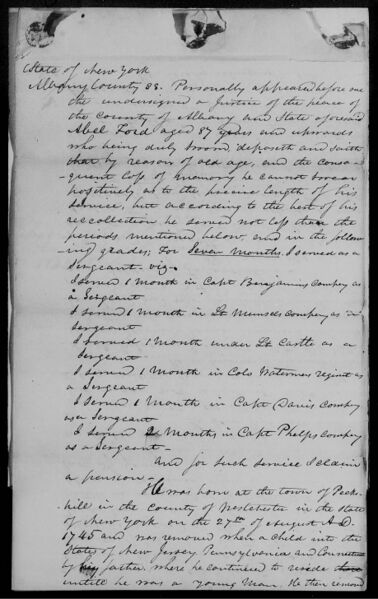 State of New York
Albany County SS. Personally appeared before me
the undersigned a Justice of the peace of
the county of Albany and State aforesaid
Abel Ford aged 87 years and upwards
who being duly sworn deposeth and saith
that by reason of old age, and the conse-
-quent loss of memory he cannot swear
positively as to the precise length of his
service, but according to the best of his
recollection he served not less than the
periods mentioned below, and in the follow
-ing grades; For Seven months I served as a
Sergeant. viz-
I served 1 month in Capt Benjamins company as
a Sergeant
I served 1 month in Lt company as a
Sergeant
I served 1 month under Lt Castle as a
Sergeant
I served 1 month in Cols Watermans regiment as
a Sergeant
I served 1 month in Capt Davis company
as a Sergeant
I served 2 months in Capt Phelps company
as a Sergeant-
and for such service I claim
a pension-
He was born at the town of Peeks-
kill in the county of Westchester in the state
of New York on the 27th of August A.D.
1745 and was removed when a child into the
States of New Jersey, Pennsylvania and
by his father where he continued to reside
untill he was a young man. He then removed